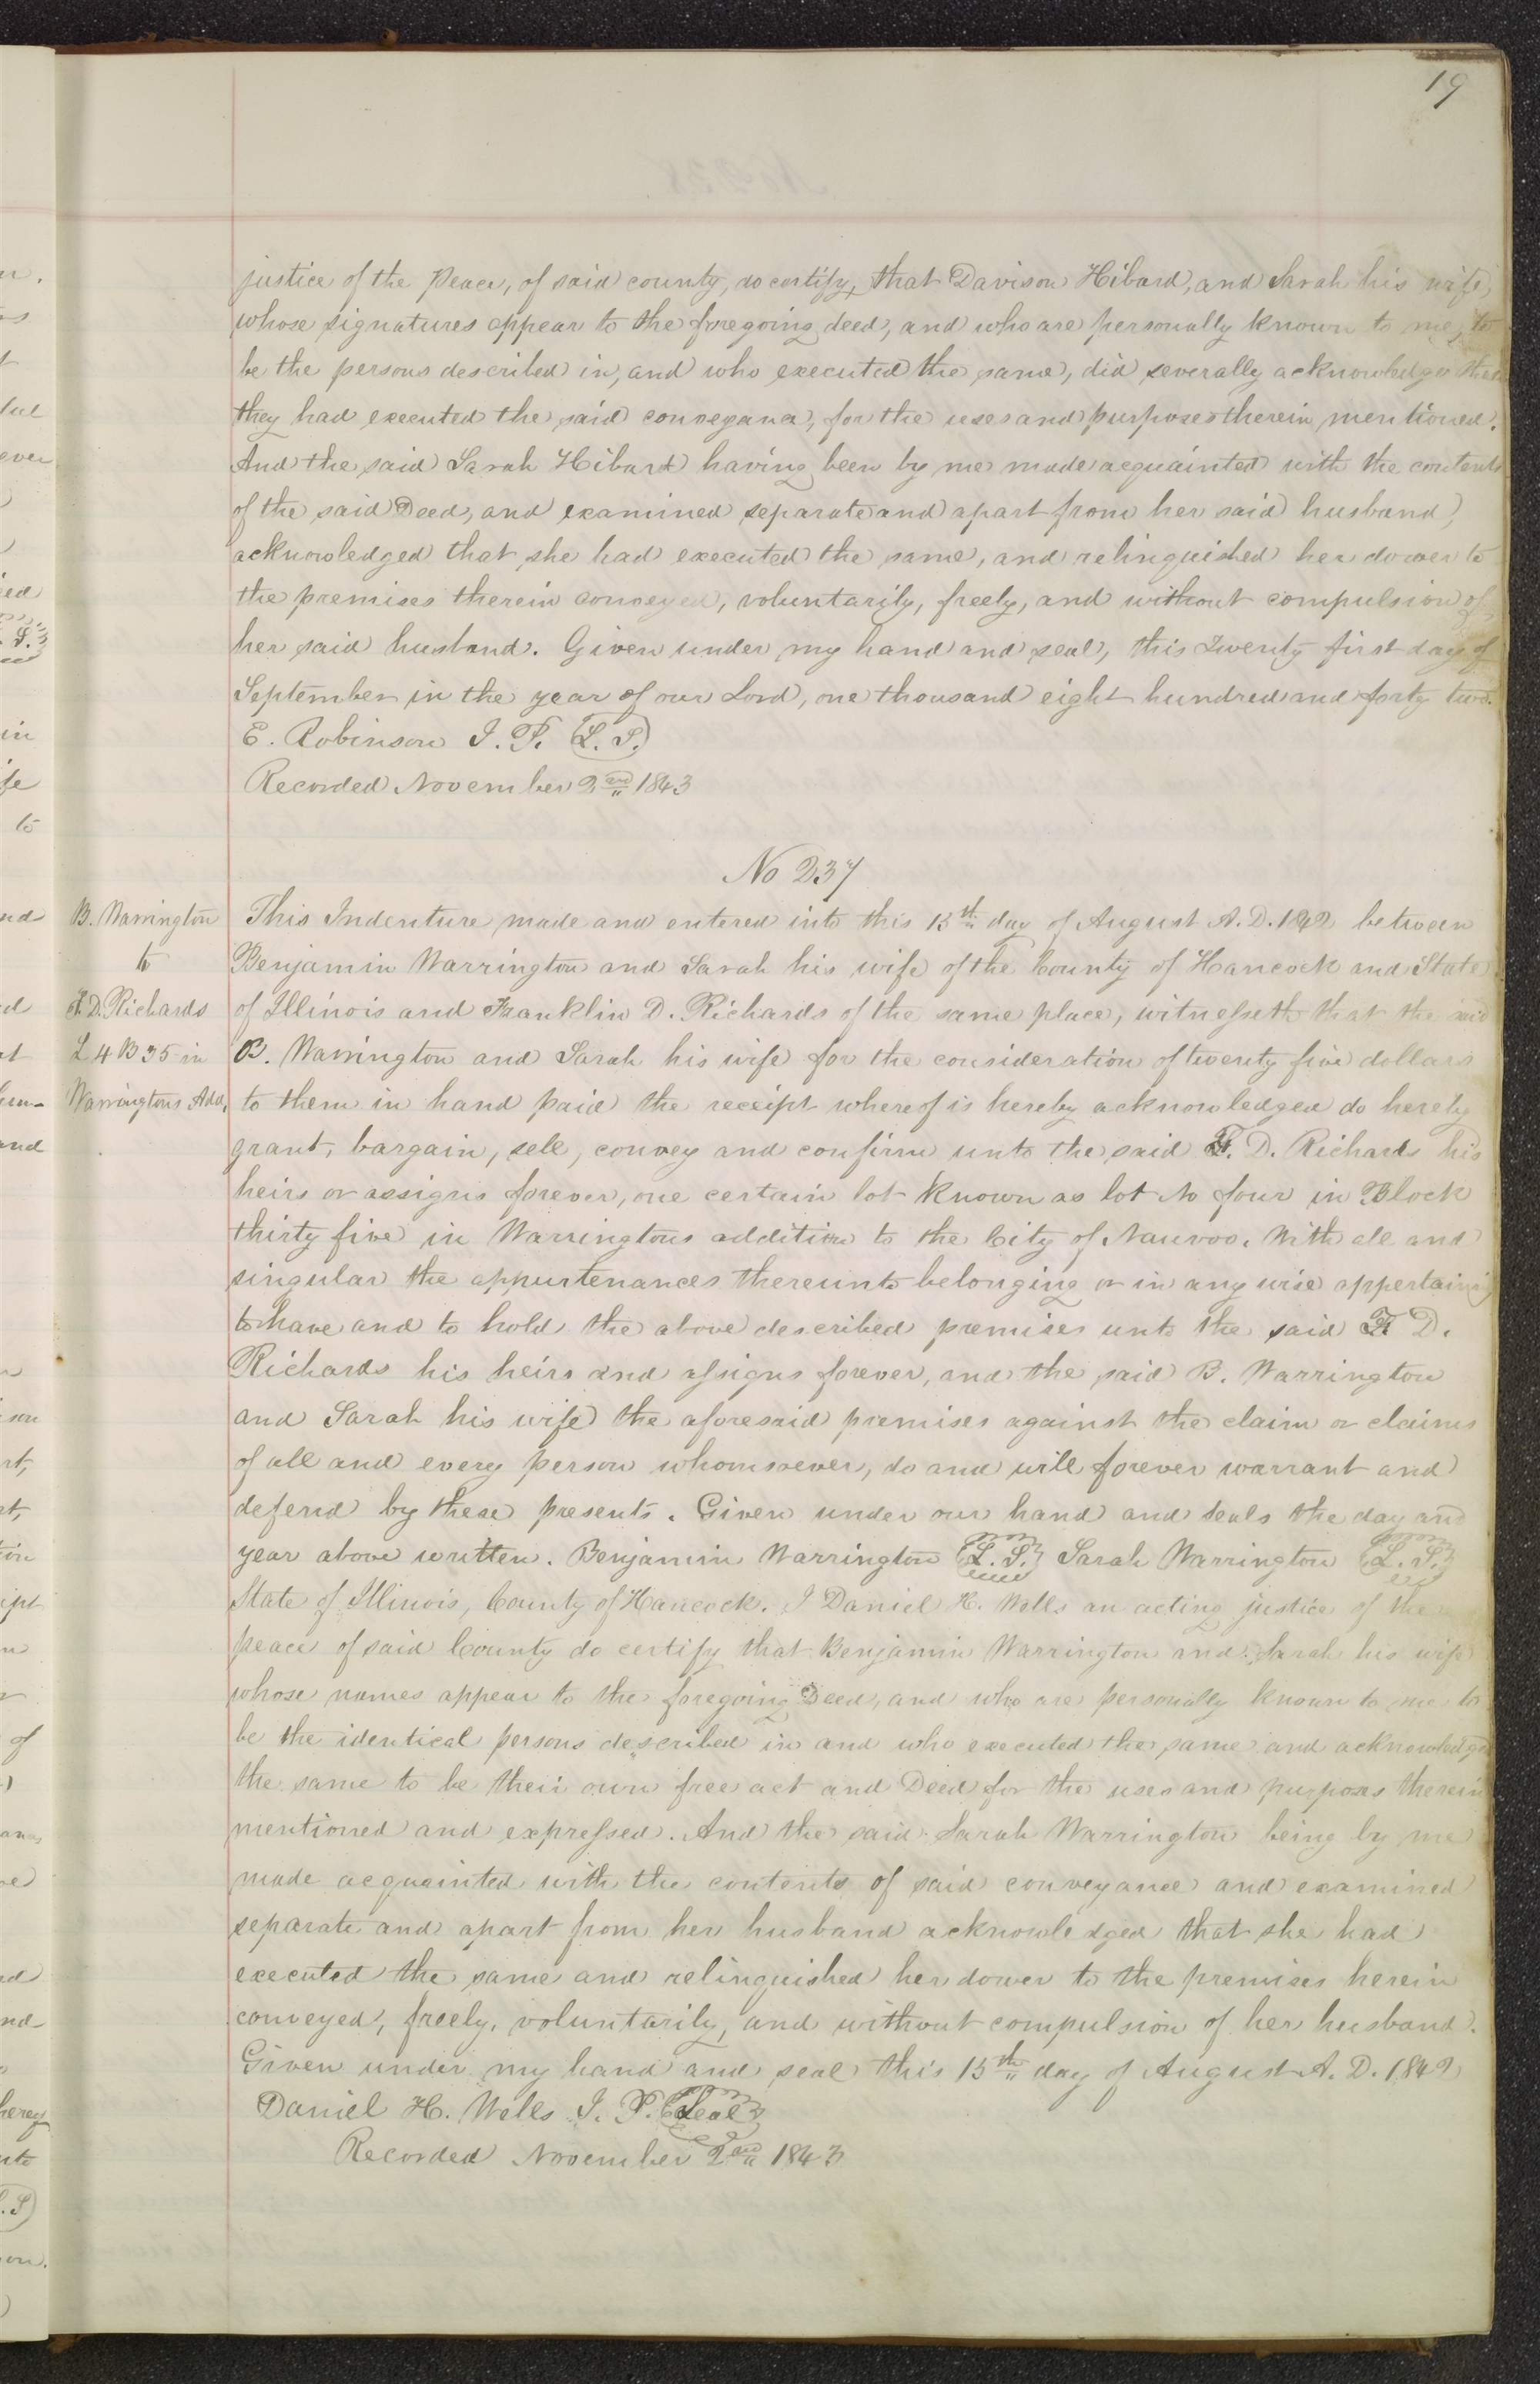 19
justice of the Peace, of said county, do certify, that Davison Hibard, and Sarah his wife,
whose signatures appear to the foregoing deed, and who are personally known to me, to
be the persons described in, and who executed the same, did severally acknowledge that
they had executed the said conveyance, for the uses and purposes therein mentioned.
And the said Sarah Hibard having been by me made acquainted with the contents
of the said Deed, and examined separate and apart from her said husband,
acknowledged that she had executed the same, and relinquished her dower to
the premises therein conveyed, voluntarily, freely, and without compulsion of
her said husband. Given under my hand and seal, this twenty first day of
September in the year of our Lord, one thousand eight hundred and forty two.
E. Robinson J. P. (L. S.)
Recorded November 2nd 1843
No 237
B. Warrington
to
F. D. Richards
L 4 B 35 in
Warringtons Add.
This Indenture made and entered into this 15th day of August A. D. 1842 between
Benjamin Warrington and Sarah his wife of the County of Hancock and State
of Illinois and Franklin D. Richards of the same place, witnesseth that the said
B. Warrington and Sarah his wife for the consideration of twenty five dollars
to them in hand paid the receipt whereof is hereby acknowledged do hereby
grant, bargain, sell, convey and confirm unto the said F. D. Richards his
heirs or assigns forever, one certain lot known as lot No four in Block
thirty five in Warringtons addition to the City of Nauvoo. With all and
singular the appurtenances thereunto belonging or in any wise appertaining
to have and to hold the above described premises unto the said F. D.
Richards his heirs and assigns forever, and the said B. Warrington
and Sarah his wife the aforesaid premises against the claim or claims
of all and every person whomsoever, do and will forever warrant and
defend by these presents. Given under our hand and seals the day and
year above written. Benjamin Warrington (L. S.) Sarah Warrington (L. S.)
State of Illinois, County of Hancock. I Daniel H. Wells an acting justice of the
peace of said County do certify that Benjamin Warrington and Sarah his wife
whose names appear to the foregoing Deed, and who are personally known to me to
be the identical persons described in and who executed the same and acknowledged
the same to be their own free act and Deed for the uses and purposes therein
mentioned and expressed. And the said Sarah Warrington being by me
made acquainted with the contents of said conveyance and examined
separate and apart from her husband acknowledged that she had
executed the same and relinquished her dower to the premises herein
conveyed, freely, voluntarily, and without compulsion of her husband.
Given under my hand and seal this 15th day of August A. D. 1842
Daniel H. Wells J. P. (Seal)
Recorded November 2nd 1843